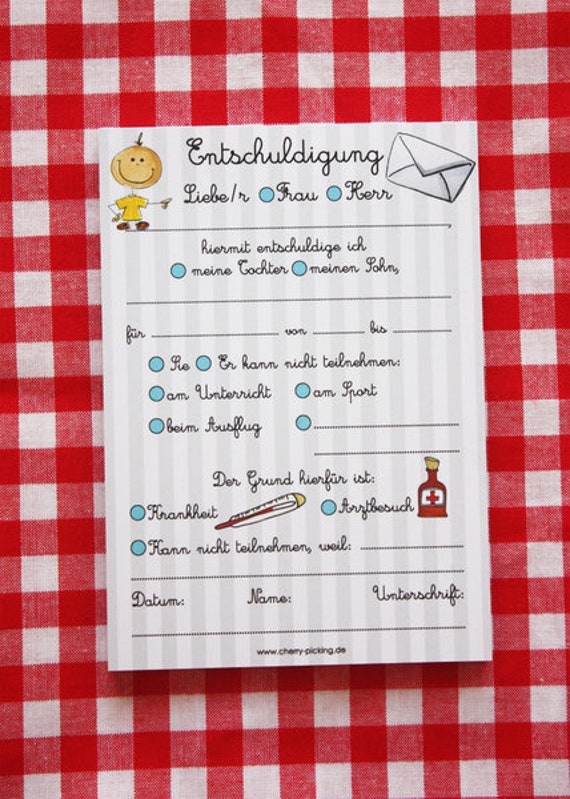 Entschuldigung
Liebe/r Frau Herr
hiermit entschuldige ich
meine Tochter meinen Sohn,
für von bis
Sie Er kann nicht teilnehmen:
am Unterricht am Sport
beim Ausflug
Der Grund hierfür ist:
Krankheit Arztbesuch
Kann nicht teilnehmen, weil:
Datum: Name: Unterschrift:
www.cherry-picking.de